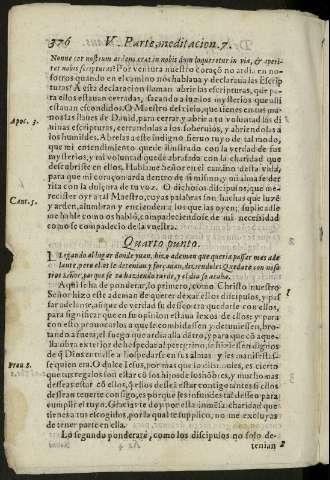 376 V. Parte, meditacion. 7.
Nonne cor nostrum ardens erat in nobis dum loqueretur in via, & aperi-
ret nobis scripturas? Por ventura nuestro coraçõ no ardia en no-
sotros quando en el camino nos hablaua y declaraua las Escrip-
turas? A esta declaracion llaman abrir las escripturas, que pa-
ra ellos estauan cerradas, sacando a luz los mysterios que alli
estauan escondidos. O Maestro del cielo, que tienes en tus ma-
Apoc. 3.
nos las llaues de Dauid, para cerrar y abrir a tu voluntad las di
uinas escripturas, cerrandolas a los soberuios, y abriendolas a
los humildes. Abrelas a este indigno sieruo tuyo de tal modo,
que mi entendimiento quede illustrado con la verdad de sus
mysterios, y mi voluntad quede abrasada con la charidad que
descubriste en ellos. Hablame Señor en el camino desta vida,
para que mi coraçon arda dentro de si mismo, y mi alma se der
Cant. 5.
rita con la dulçura de tu voz. O dichosos discipulos, que me-
recistes oyr a tal Maestro, cuyas palabras son hachas que luzẽ
y arden, alumbran y encienden a los que las oyen; suplicadle
me hable como os habló, compadeciendose de mi necesidad
como se compadecio de la vuestra.
Quarto punto.
LLegando al lugar donde yuan, hizo ademan que queria passar mas ade
lante, pero ellos le detenian y forçauan, diziendole: Quedate con noso
tros Señor, porque se va haziendo tarde, y el dia se acaba.
Aqui se ha de ponderar, lo primero, como Christo nuestro
Señor hizo este ademan de querer dexar a los discipulos, y pas
sar adelante, aũque de verdad su desseo era quedarse con ellos,
para significar que en su opinion estaua lexos de ellos: y para
con esto prouocarlos a que le combidassen y detuuiessen, bro-
tando a fuera, el fuego que ardia alla dẽtro; y para que cõ aque-
lla obra exterior de hospedar al peregrino, se hiziessen dignos
de q̃ Dios entrasse a hospedarse en sus almas y les manifestas-
Prou. 8.
se quien era. O dulce Iesus, por mas que lo dissimules, es cierto
que tus regalos son estar cõ los hijos de los hõbres, y mucho mas
desseas estar cõ ellos, q̃ ellos dessean estar contigo: antes si ellos
dessean tenerte consigo, es porque les infundes tal desseo para
cumplir el tuyo. Gracias te doy por essa inmensa charidad que
tienes a tus escogidos, por la qual te suplico, no me excluyas
de tener parte en ella.
Lo segundo ponderarè, como los discipulos no solo de-
tenian